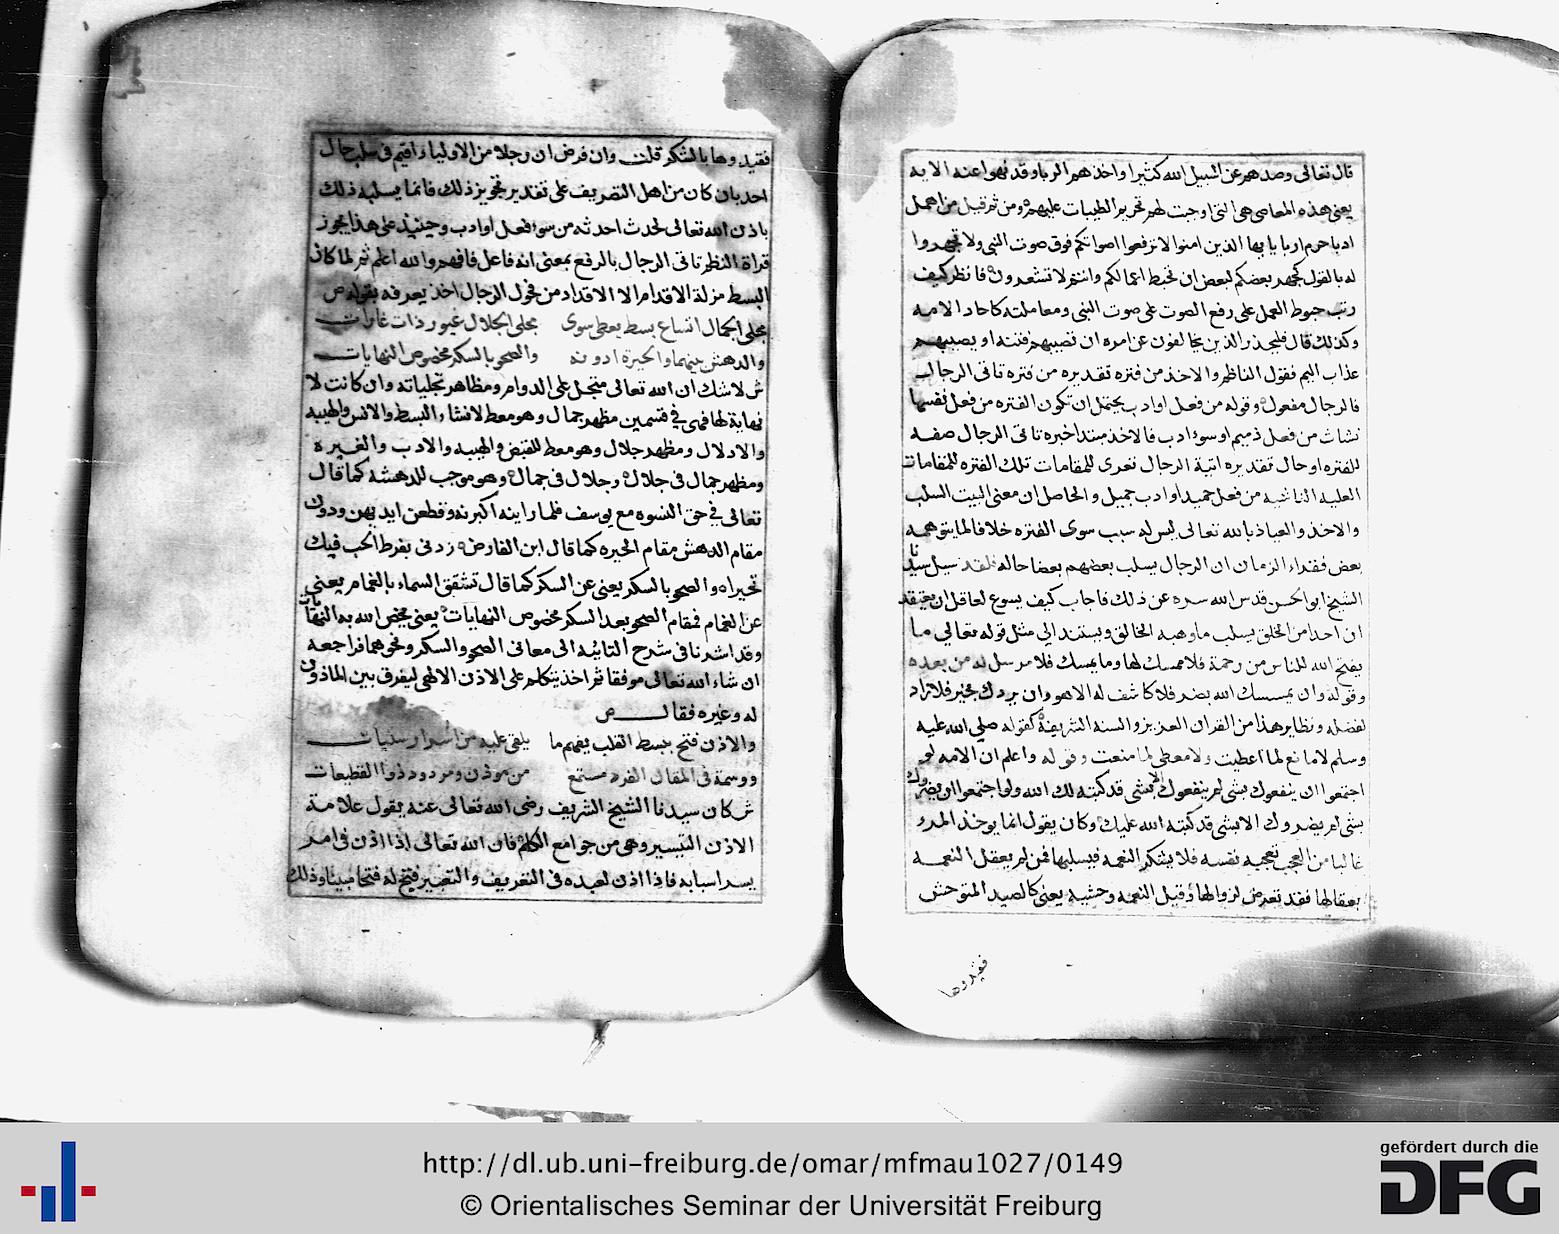 قال تعالى وصدهم عن السبيل الله كثيرا واخذهم الربا وقد نهوا عنه الايه
يعنى هذه المعاصى هى التى اوجبت لهم تحريم الطيبات عليهم ومن ثم قيل من اهمل
ادبا حرم اربا يا يها الذين امنوا لا ترفعوا اصواتكم فوق صوت النبى ولا تجهروا
له بالقول كجهر بعضكم لبعض ان تحبط اعمالكم وانتم لا تشعرون فانظر كيف
رتب حبوط العمل على رفع الصوت على صوت النبى ومعاملته كاحاد الامه
وكذلك قال فليحذر الذين يخالفون عن امره ان تصيبهم فتنه او يصيبهم
عذاب اليم فقول الناظم والاخذ من فتره تقديره من فتره تاتى الرجال
فالرجال مفعول وقوله من فعل او ادب يحتمل ان تكون الفتره من فعل نفسها
نشات من فعل ذميم او سوء ادب فالاخذ مبتدا خبره تاتى الرجال صفه
للفتره او حال تقديره اتية الرجال تعرى للمقامات تلك الفتره للمقامات
العليه الناشيه من فعل حميد او ادب جميل والحاصل ان معنى البيت السلب
والاخذ والعياذ بالله تعالى ليس له سبب سوى الفتره خلافا لما يتوهمه
بعض فقراء الزمان ان الرجال يسلب بعضهم بعضا حاله فلقد سيل سيدنا
الشيخ ابو الحسن قدس الله سره عن ذلك فاجاب كيف يسوع لعاقل ان يعتقد
ان احدا من الخلق يسلب ما وهبه الخالق ويستند الى مثل قوله تعالى ما
يفتح الله للناس من رحمة فلا ممسك لها وما يمسك فلا مرسل له من بعده
وقوله وان يمسسك الله بضر فلا كاشف له الا هو وان يردك بخير فلا راد
لفضله ونظاير هذا من القران العزيز والسنه الشريفة كقوله صلى الله عليه
وسلم لا مانع لما اعطيت ولا معطى لما منعت وقوله واعلم ان الامه لو
اجتمعوا ان ينفعوك بشى لم ينفعوك الا بشى قد كتبه لك الله ولو اجتمعوا ان يضروك
بشى لم يضروك الا بشى قد كتبه الله عليك وكان يقول انما يوخذ المرء
غالبا من العجب تعجبه نفسه فلا يشكر النعمه فيسلبها فمن لم يعقل النعمه
بعقالها فقد تعرض لزوالها وقيل النعمه وحشيه يعنى كالصيد المتوحش
فقيدوها
فقيدوها بالشكر قلت وان فرض ان رجلا من الاولياء اقيم فى سلب حال
احد بان كان من اهل التصريف على تقدير تجويز ذلك فانما يسلبه ذلك
باذن الله تعالى لحدث احدثه من سوء فعل او ادب وحينيذ على هذا يجوز
قراة النظم تاتى الرجال بالرفع بمعنى انه فاعل فافهم والله اعلم ثم لما كان
البسط مزلة الاقدام الا الاقداد من فحول الرجال اخذ يعرفه بقوله ص
مجلى الجمال اتساع بسط يعطى سوى مجلى الجلال غيور ذات غارات
والدهش بينهما والحيرة ادونه والصحو بالسكر مخصوص النهايات
ش لا شك ان الله تعالى متجل على الدوام ومظاهر تجلياته وان كانت لا
نهاية لها فهى فى قسمين مظهر جمال وهو معط لانشاء البسط والانس والهيبه
والادلال ومظهر جلال وهو معط للقبض والهيبه والادب والغيره
ومظهر جمال فى جلال وجلال فى جمال وهو موجب للدهشه كما قال
تعالى فى حق النسوه مع يوسف فلما راينه اكبرنه وقطعن ايديهن ودون
مقام الدهش مقام الحيره كما قال ابن الفارض زدنى بفرط الحب فيك
تحيراه والصحو بالسكر يعنى عن السكر كما قال تشقق السماء بالغمام يعنى
عن الغمام فمقام الصحو بعد السكر مخصوص النهايات يعنى يختص الله به النهايات
وقد اشرنا فى شرح التائيه الى معانى الصحو والسكر ونحوهما فراجعه
ان شاء الله تعالى موفقا ثم اخذ يتكلم على الاذن الالهى ليفرق بين الماذون
له وغيره فقال ص
والاذن فتح ببسط القلب يفهم ما يلقى عليه من اسرار سنيات
ووسمة فى المقال الفرد مستمع من موذن ومردود ذوا القطيعات
ش كان سيدنا الشيخ الشريف رضى الله تعالى عنه يقول علامة
الاذن التيسير وهى من جوامع الكلم فان الله تعالى اذا اذن فى امر
يسر اسبابه فاذا اذن لعبده فى التعريف والتعبير فتح له فتحا مبينا وذلك
http://dl.ub.uni-freiburg.de/omar/mfmau1027/0149
© Orientalisches Seminar der Universität Freiburg
gefördert durch die
DFG